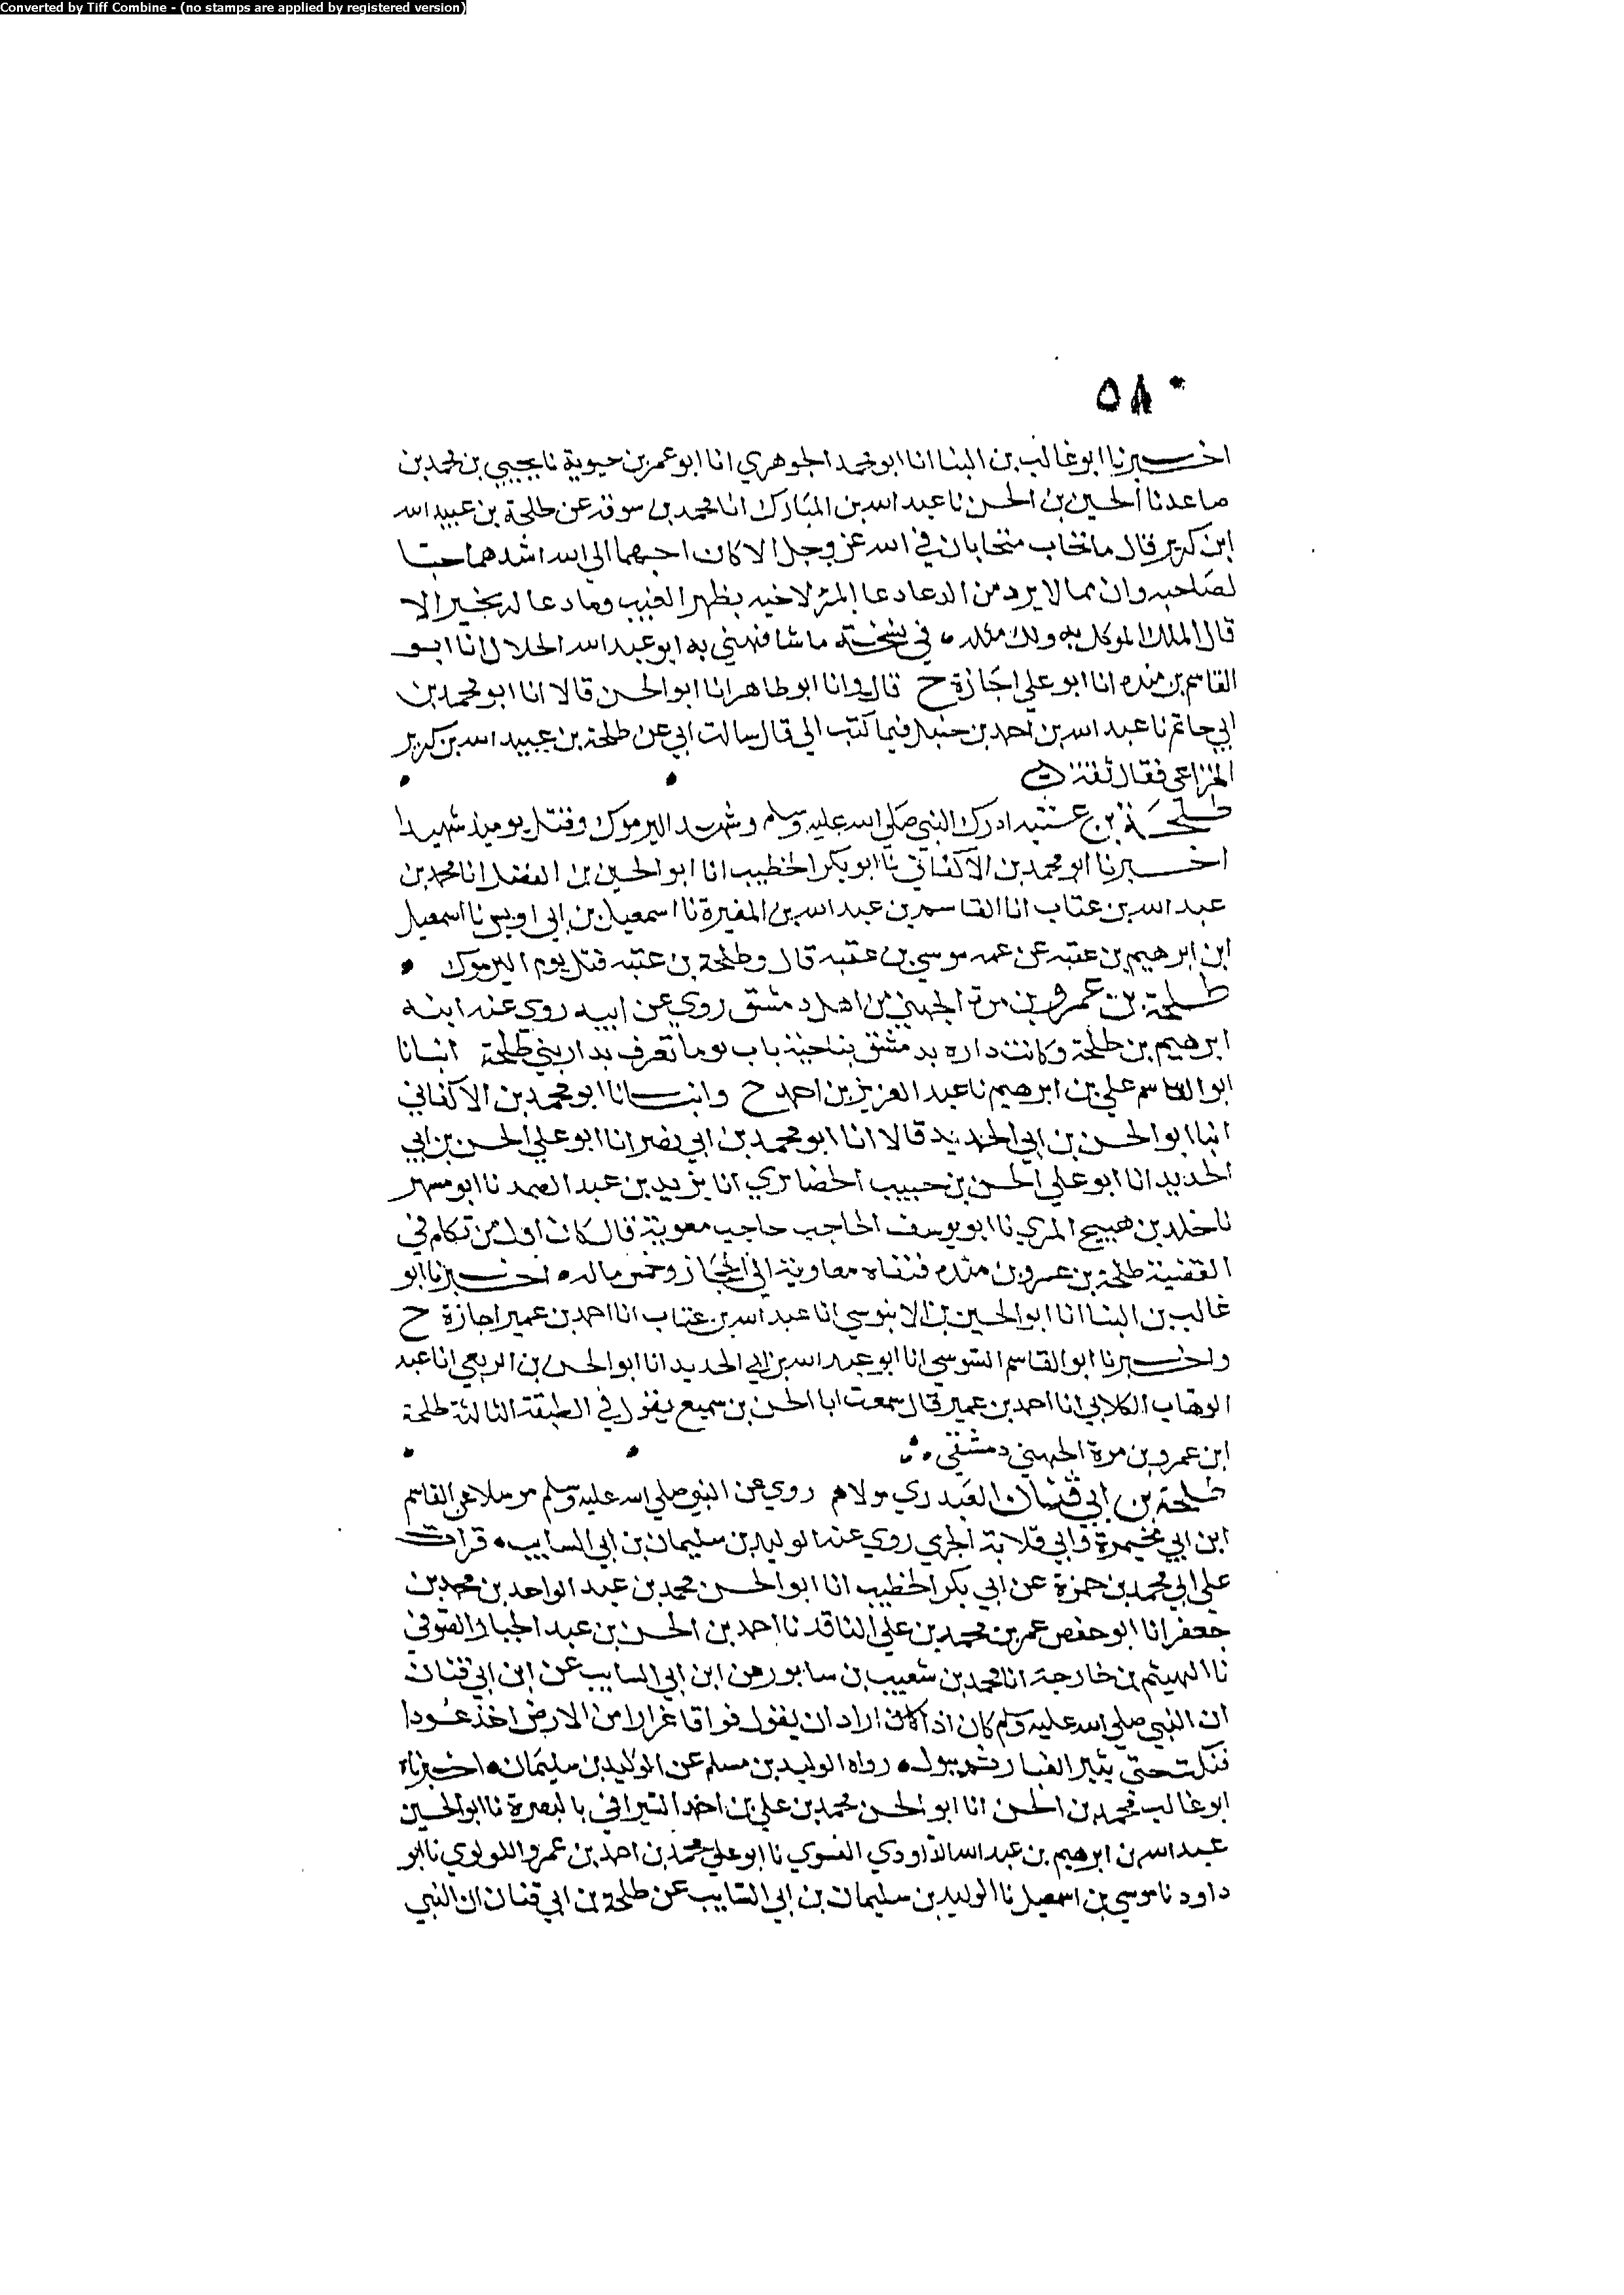 Converted by Tiff Combine - (no stamps are applied by registered version)
٥٨٠
اخبرنا ابو غالب بن البنا انا ابو محمد الجوهري انا ابو عمر بن حيوية نا يحيي بن محمد بن
صاعد نا الحسين بن الحسن نا عبد الله بن المبارك انا محمد بن سوقه عن طلحة بن عبيد الله
ابن كريز قال ما تحاب متحابان في الله عز وجل الا كان احبهما الي الله اشدهما حبا
لصاحبه وان مما لا يرد من الدعا دعا المرء لاخيه بظهر الغيب وما دعا له بخير الا
قال الملك الموكل به ولك مثله في نسخة ما شافهني به ابو عبد الله الخلال انا ابو
القاسم بن منده انا ابو علي اجازة ح قال وانا ابو طاهر انا ابو الحسن قالا انا ابو محمد بن
ابي حاتم نا عبد الله بن احمد بن حنبل فيما كتب الي قال سالت ابي عن طلحة بن عبيد الله بن كريز
الخزاعي فقال ثقة
طلحة بن عتبه ادرك النبي صلي الله عليه وسلم وشهد اليرموك وقتل يوميذ شهيدا
اخبرنا ابو محمد بن الاكفاني نا ابو بكر الخطيب انا ابو الحسين بن الفضل انا محمد بن
عبد الله بن عتاب انا القاسم بن عبد الله بن المغيرة نا اسمعيل بن ابي اويس نا اسمعيل
ابن ابرهيم بن عقبه عن عمه موسي بن عقبه قال وطلحة بن عتبه قتل يوم اليرموك
طلحة بن عمرو بن مرة الجهني من اهل دمشق روي عن ابيه روي عنه ابنه
ابرهيم بن طلحة وكانت داره بدمشق بناحية باب توما تعرف بدار بني طلحة انبانا
ابو القاسم علي بن ابرهيم نا عبد العزيز بن احمد ح وانبانا ابو محمد بن الاكفاني
انبا ابو الحسن بن ابي الحديد قالا انا ابو محمد بن ابي نصر انا ابو علي الحسن بن ابي
الحديد انا ابو علي الحسن بن حبيب الحضائري انا يزيد بن عبد الصمد نا ابو مسهر
نا خلد بن هييج المري نا ابو يوسف الحاجب حاجب معوية قال كان اول من تكلم في
القضية طلحة بن عمرو بن فنفاه معاوية الي الحجاز وخمس ماله اخبرنا ابو
غالب بن البنا انا ابو الحسين بن الابنوسي انا عبد الله بن عتاب انا احمد بن عمير اجازة ح
واخبرنا ابو القاسم السوسي انا ابو عبد الله بن ابي الحديد انا ابو الحسن بن الربعي انا عبد
الوهاب الكلابي انا احمد بن عمير قال سمعت ابا الحسن بن سميع يقول في الطبقة الثالثة طلحة
ابن عمرو بن مرة الجهني دمشقي
طلحة بن ابي قنان العبدري مولاهم روي عن النبي صلي الله عليه وسلم مرسلا عن القاسم
ابن ابي مخيمرة وابي قلابة الجرمي روي عنه الوليد بن سليمان بن ابي السايب قرات
علي ابي محمد بن حمزة عن ابي بكر الخطيب انا ابو الحسن محمد بن عبد الواحد بن محمد بن
جعفر انا ابو حفص عمر بن محمد بن علي الناقد نا احمد بن الحسن بن عبد الجبار الصوفي
نا الهيثم بن خارجة انا محمد بن شعيب بن سابور عن ابن ابي السايب عن ابن ابي قنان
ان النبي صلي الله عليه وسلم كان اذا كان اراد ان يبول فوافا عزازا من الارض اخذ عودا
فنكت حتي يثير الغبار ثم يبول رواه الوليد بن مسلم عن الوليد بن سليمان اخبرناه
ابو غالب محمد بن الحسن انا ابو الحسن محمد بن علي بن احمد السيرافي بالبصرة نا ابو الحسين
عبد الله بن ابرهيم بن عبد الله الداودي الفسوي نا ابو علي محمد بن احمد بن عمرو اللولوي نا ابو
داود نا موسي بن اسمعيل نا الوليد بن سليمان بن ابي السايب عن طلحة بن ابي قنان ان النبي